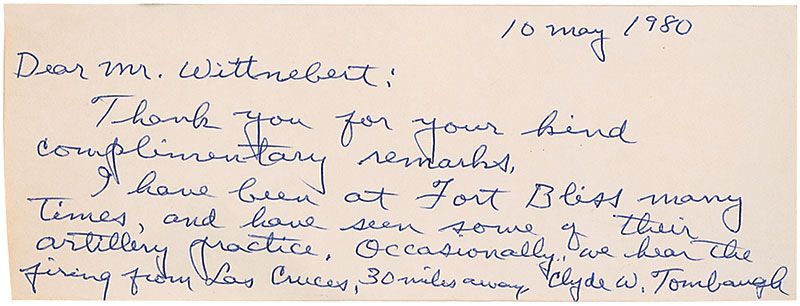 10 May 1980
Dear Mr. Wittnebert:
Thank you for your kind
complimentary remarks.
I have been at Fort Bliss many
times, and have seen some of their
artillery practice. Occasionally, we hear the
firing from Las Cruces, 30 miles away. Clyde W. Tombaugh